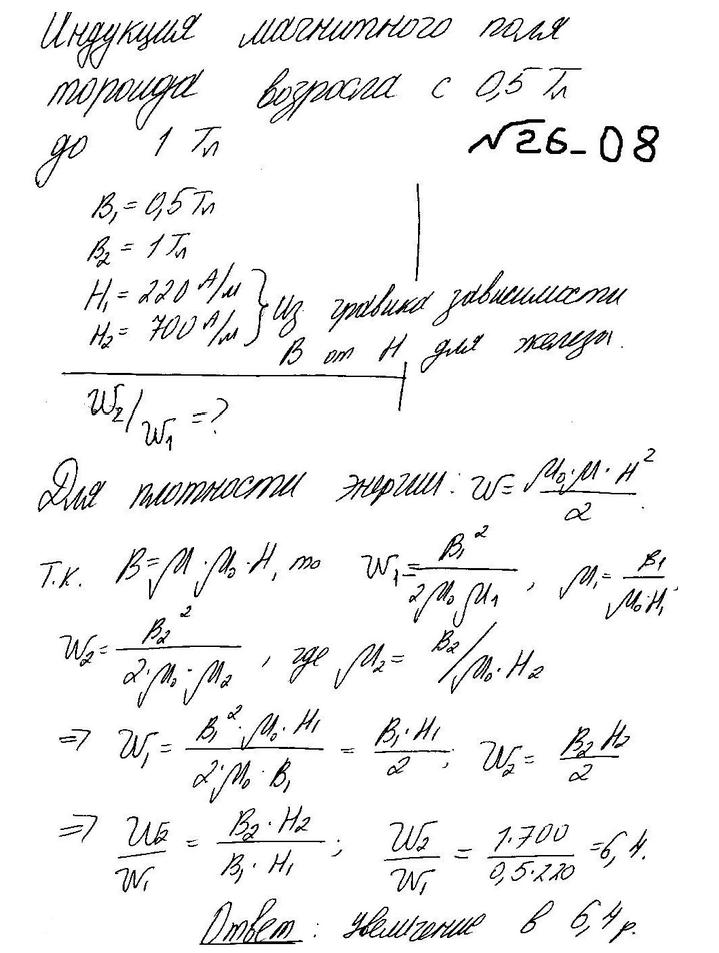 Индукция магнитного поля
тороида возросла с 0,5 Тл
до 1 Тл √26-08
B₁ = 0,5 Тл
B₂ = 1 Тл
H₁ = 220 А/м
H₂ = 700 А/м } Из графика зависимости
B от H для железа.
W₂/W₁ = ?
Для плотности энергии: W = μ₀·μ·H²/2.
Т.к. B = μ·μ₀·H, то W₁ = B₁²/2μ₀μ₁, μ₁ = B₁/μ₀·H₁,
W₂ = B₂²/2·μ₀·μ₂, где μ₂ = B₂/μ₀·H₂
=> W₁ = B₁²·μ₀·H₁/2·μ₀·B₁ = B₁·H₁/2; W₂ = B₂H₂/2
=> W₂/W₁ = B₂·H₂/B₁·H₁; W₂/W₁ = 1·700/0,5·220 = 6,4.
Ответ: увеличение в 6,4 р.